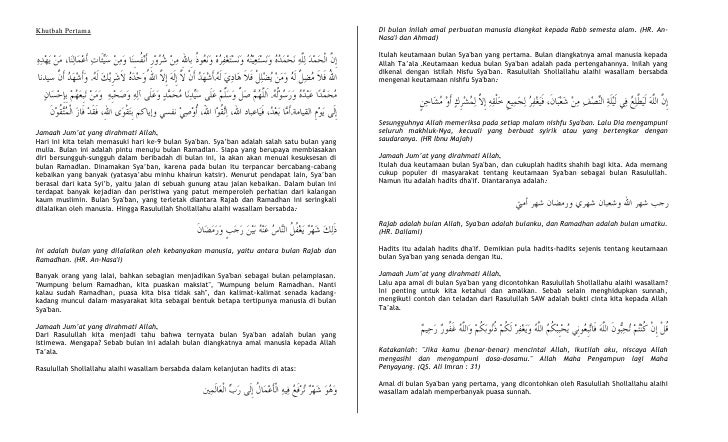 Khutbah Pertama
إِنَّ الْحَمْدَ لِلَّهِ نَحْمَدُهُ وَنَسْتَعِيْنُهُ وَنَسْتَغْفِرُهُ وَنَعُوذُ بِاللهِ مِنْ شُرُوْرِ أَنْفُسِنَا وَمِنْ سَيِّئَاتِ أَعْمَالِنَا، مَنْ يَهْدِهِ
اللهُ فَلاَ مُضِلَّ لَهُ وَمَنْ يُضْلِلْ فَلاَ هَادِيَ لَهُ أَشْهَدُ أَنْ لاَ إِلَهَ إِلاَّ اللهُ وَحْدَهُ لاَشَرِيْكَ لَهُ. وَأَشْهَدُ أَنَّ سيدنا
مُحَمَّدًا عَبْدُهُ وَرَسُوْلُهُ. اَللَّهُمَّ صَلِّ وَسَلِّمْ عَلَى سَيِّدِنَا مُحَمَّدٍ وَعَلَى آلِهِ وَصَحْبِهِ وَمَنْ تَبِعَهُمْ بِإِحْسَانٍ
إِلَى يَوْمِ القيامة.أَمَّا بَعْدُ، فَيَاعِبَادَ اللهِ، اتَّقُوْا اللهَ، أُوْصِيْ نفسي وإياكم بِتَقْوَى اللهِ، فَقَدْ فَازَ الْمُتَّقُوْنَ
Jamaah Jum'at yang dirahmati Allah,
Hari ini kita telah memasuki hari ke-9 bulan Sya'ban. Sya'ban adalah salah satu bulan yang
mulia. Bulan ini adalah pintu menuju bulan Ramadlan. Siapa yang berupaya membiasakan
diri bersungguh-sungguh dalam beribadah di bulan ini, ia akan akan menuai kesuksesan di
bulan Ramadlan. Dinamakan Sya'ban, karena pada bulan itu terpancar bercabang-cabang
kebaikan yang banyak (yatasya'abu minhu khairun katsir). Menurut pendapat lain, Sya'ban
berasal dari kata Syi'b, yaitu jalan di sebuah gunung atau jalan kebaikan. Dalam bulan ini
terdapat banyak kejadian dan peristiwa yang patut memperoleh perhatian dari kalangan
kaum muslimin. Bulan Sya'ban, yang terletak diantara Rajab dan Ramadhan ini seringkali
dilalaikan oleh manusia. Hingga Rasulullah Shollallahu alaihi wasallam bersabda:
ذَلِكَ شَهْرٌ يَغْفُلُ النَّاسُ عَنْهُ بَيْنَ رَجَبٍ وَرَمَضَانَ
Ini adalah bulan yang dilalaikan oleh kebanyakan manusia, yaitu antara bulan Rajab dan
Ramadhan. (HR. An-Nasa'i)
Banyak orang yang lalai, bahkan sebagian menjadikan Sya'ban sebagai bulan pelampiasan.
"Mumpung belum Ramadhan, kita puaskan maksiat", "Mumpung belum Ramadhan. Nanti
kalau sudah Ramadhan, puasa kita bisa tidak sah", dan kalimat-kalimat senada kadang-
kadang muncul dalam masyarakat kita sebagai bentuk betapa tertipunya manusia di bulan
Sya'ban.
Jamaah Jum'at yang dirahmati Allah,
Dari Rasulullah kita menjadi tahu bahwa ternyata bulan Sya'ban adalah bulan yang
istimewa. Mengapa? Sebab bulan ini adalah bulan diangkatnya amal manusia kepada Allah
Ta'ala.
Rasulullah Shollallahu alaihi wasallam bersabda dalam kelanjutan hadits di atas:
وَهُوَ شَهْرٌ تُرْفَعُ فِيهِ الْأَعْمَالُ إِلَى رَبِّ الْعَالَمِينَ
Di bulan inilah amal perbuatan manusia diangkat kepada Rabb semesta alam. (HR. An-
Nasa'i dan Ahmad)
Itulah keutamaan bulan Sya'ban yang pertama. Bulan diangkatnya amal manusia kepada
Allah Ta'ala .Keutamaan kedua bulan Sya'ban adalah pada pertengahannya. Inilah yang
dikenal dengan istilah Nisfu Sya'ban. Rasulullah Shollallahu alaihi wasallam bersabda
mengenai keutamaan nishfu Sya'ban:
إِنَّ اللَّهَ لَيَطَّلِعُ فِي لَيْلَةِ النِّصْفِ مِنْ شَعْبَانَ، فَيَغْفِرُ لِجَمِيعِ خَلْقِهِ إِلاَّ لِمُشْرِكٍ أَوْ مُشَاحِنٍ
Sesungguhnya Allah memeriksa pada setiap malam nishfu Sya'ban. Lalu Dia mengampuni
seluruh makhluk-Nya, kecuali yang berbuat syirik atau yang bertengkar dengan
saudaranya. (HR Ibnu Majah)
Jamaah Jum'at yang dirahmati Allah,
Itulah dua keutamaan bulan Sya'ban, dan cukuplah hadits shahih bagi kita. Ada memang
cukup populer di masyarakat tentang keutamaan Sya'ban sebagai bulan Rasulullah.
Namun itu adalah hadits dha'if. Diantaranya adalah:
رجب شهر الله وشعبان شهري ورمضان شهر أمتي
Rajab adalah bulan Allah, Sya'ban adalah bulanku, dan Ramadhan adalah bulan umatku.
(HR. Dailami)
Hadits itu adalah hadits dha'if. Demikian pula hadits-hadits sejenis tentang keutamaan
bulan Sya'ban yang senada dengan itu.
Jamaah Jum'at yang dirahmati Allah,
Lalu apa amal di bulan Sya'ban yang dicontohkan Rasulullah Shollallahu alaihi wasallam?
Ini penting untuk kita ketahui dan amalkan. Sebab selain menghidupkan sunnah,
mengikuti contoh dan teladan dari Rasulullah SAW adalah bukti cinta kita kepada Allah
Ta'ala.
قُلْ إِنْ كُنْتُمْ تُحِبُّونَ اللَّهَ فَاتَّبِعُونِي يُحْبِبْكُمُ اللَّهُ وَيَغْفِرْ لَكُمْ ذُنُوبَكُمْ وَاللَّهُ غَفُورٌ رَحِيمٌ
Katakanlah: "Jika kamu (benar-benar) mencintai Allah, ikutilah aku, niscaya Allah
mengasihi dan mengampuni dosa-dosamu." Allah Maha Pengampun lagi Maha
Penyayang. (QS. Ali Imran : 31)
Amal di bulan Sya'ban yang pertama, yang dicontohkan oleh Rasulullah Shollallahu alaihi
wasallam adalah memperbanyak puasa sunnah.